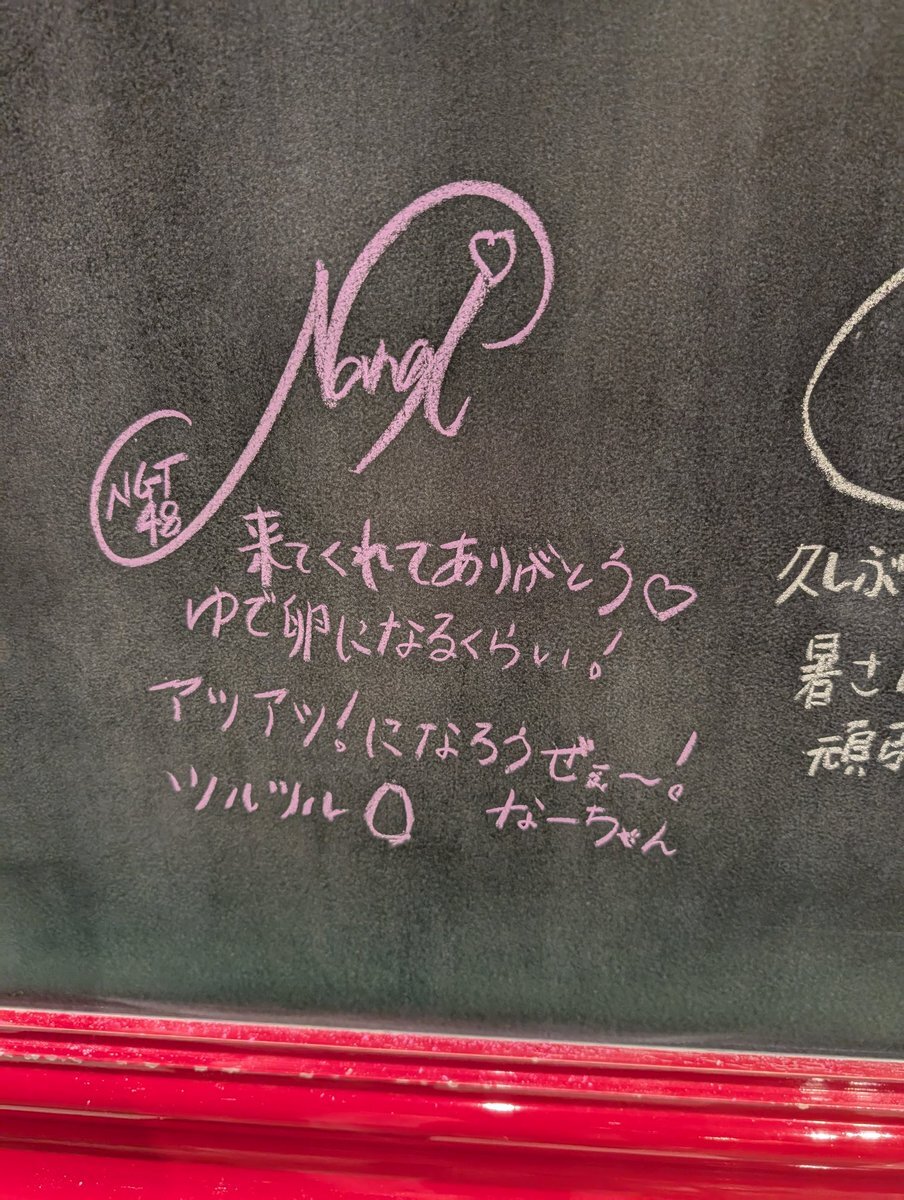 NGT
48
来てくれてありがとう♡
ゆで卵になるくらい!
アツアツ!になろうぜぇ〜!
ツルツル
なーちゃん
久しぶ
暑さ
頑張